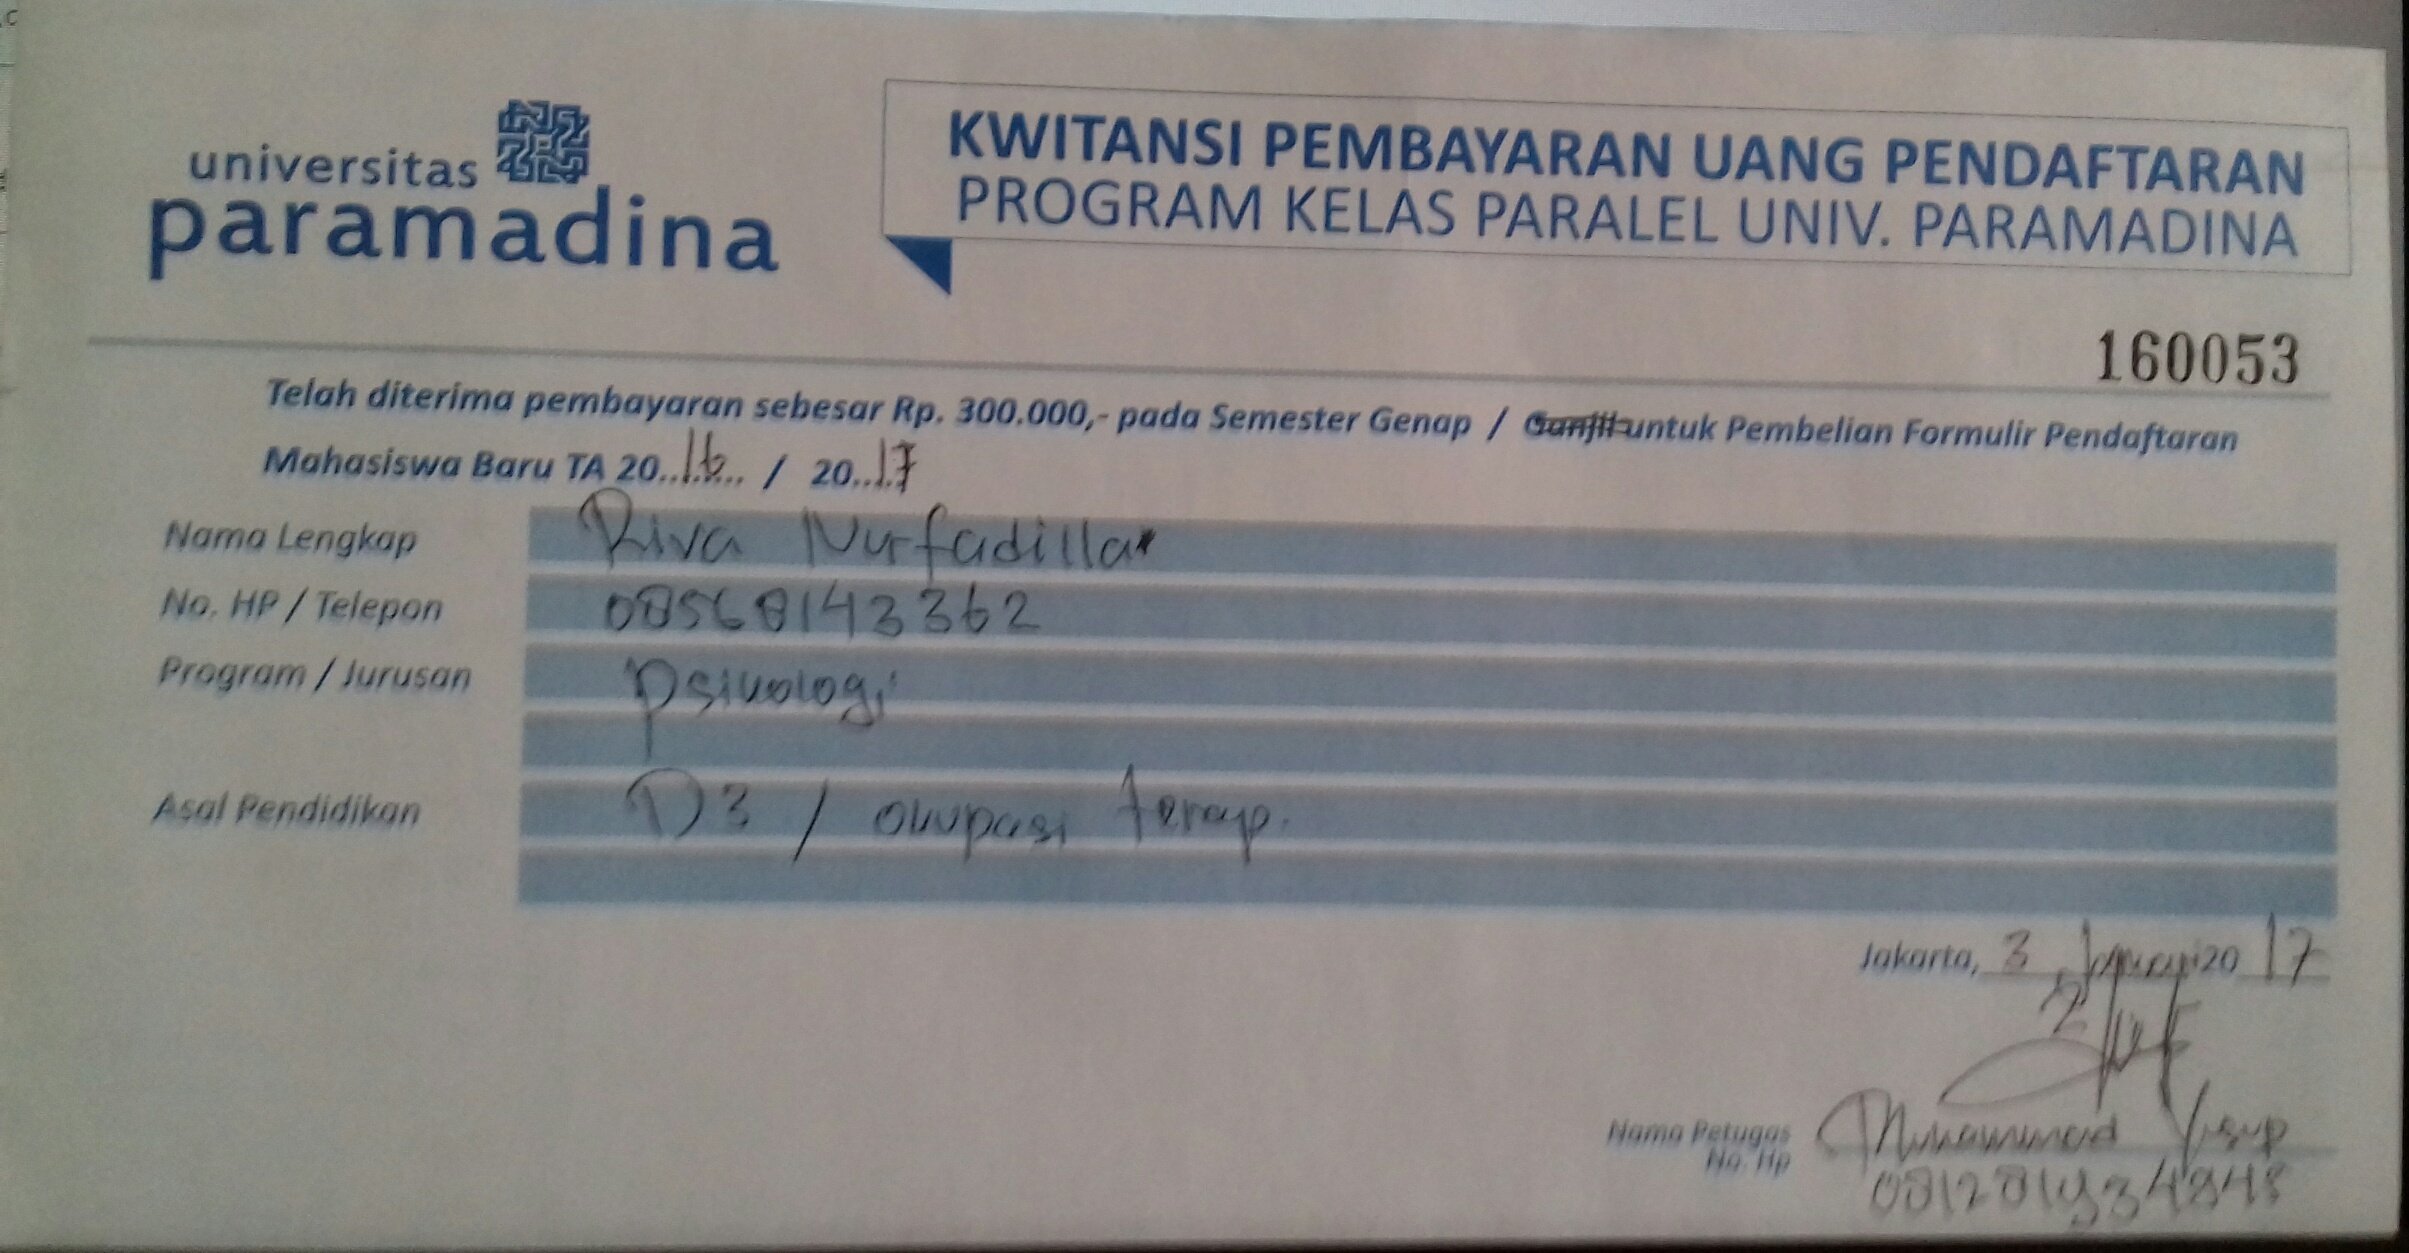 universitas
paramadina
KWITANSI PEMBAYARAN UANG PENDAFTARAN
PROGRAM KELAS PARALEL UNIV. PARAMADINA
160053
Telah diterima pembayaran sebesar Rp. 300.000,- pada Semester Genap / Ganjil untuk Pembelian Formulir Pendaftaran
Mahasiswa Baru TA 20..16... / 20..17
Nama Lengkap Riva Nurfadilla
No. HP / Telepon 08568143362
Program / Jurusan Psikologi
Asal Pendidikan D3 / Okupasi terap.
Jakarta, 3 Januari 20 17
Nama Petugas Muhammad Yusup
No. Hp